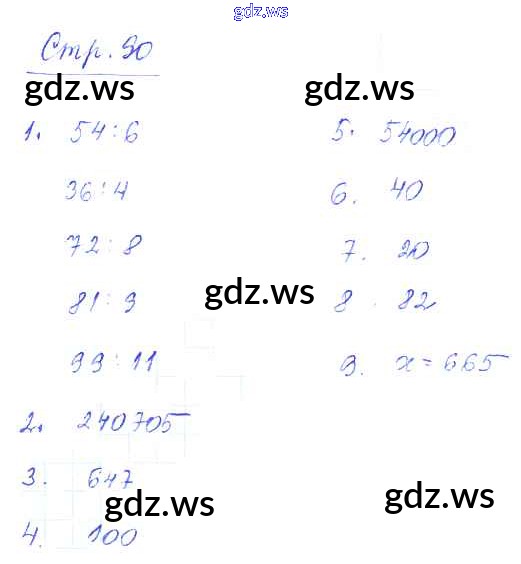 gdz.ws
Стр. 90
gdz.ws
gdz.ws
1. 54:6
36:4
72:8
81:9
99:11
2. 240705
3. 647
4. 100
5. 54000
6. 40
7. 20
8. 82
9. x = 665
gdz.ws
gdz.ws
gdz.ws